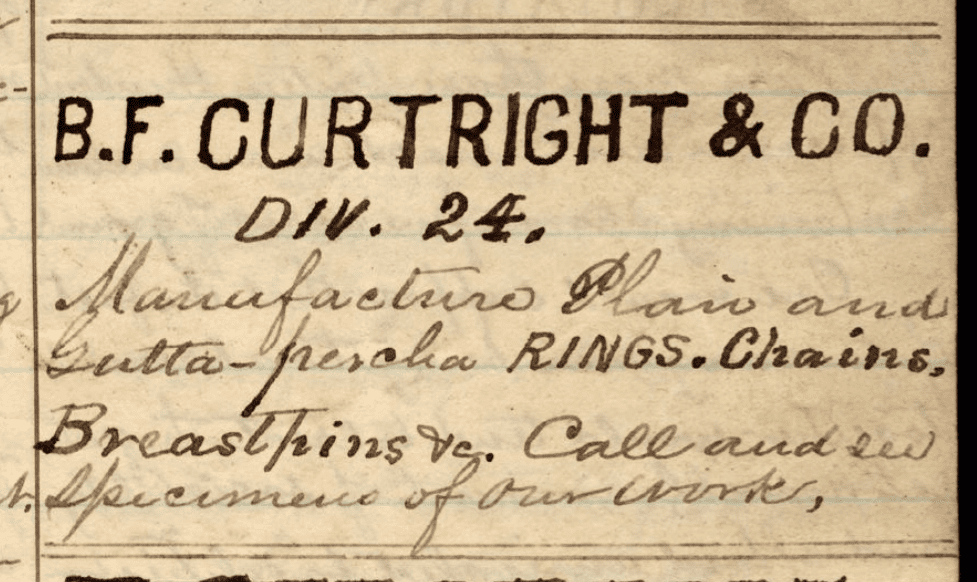 B.F. CURTRIGHT & CO.
DIV. 24.
Manufacture Plain and
Gutta-percha RINGS. Chains,
Breastpins &c. Call and see
specimens of our work,